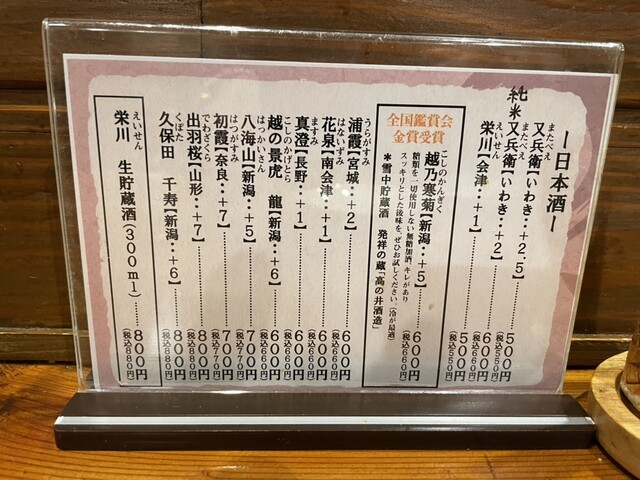 ー日本酒ー
またべえ
又兵衛【いわき・・+2.5】…………500円
(税込550円)
純米
またべえ
又兵衛【いわき・・+2】…………600円
(税込660円)
えいせん
栄川【会津・・+1】…………500円
(税込550円)
全国鑑賞会
金賞受賞
こしのかんぎく
越乃寒菊【新潟・・+5】…………600円
(税込660円)
糖類を一切使用しない無糖加酒、キレがあり
スッキリとした後味を、ぜひお試しください。(冷が最適)
*雪中貯蔵酒 発祥の蔵「高の井酒造」
うらがすみ
浦霞【宮城・・+2】…………600円
(税込660円)
はないずみ
花泉【南会津・・+1】…………600円
(税込660円)
ますみ
真澄【長野・・+1】…………600円
(税込660円)
こしのかげとら
越の景虎 龍【新潟・・+6】…………600円
(税込660円)
はっかいさん
八海山【新潟・・+5】…………700円
(税込770円)
はつがすみ
初霞【奈良・・+7】…………700円
(税込770円)
でわざくら
出羽桜【山形・・+7】…………800円
(税込880円)
くぼた
久保田 千寿【新潟・・+6】…………800円
(税込880円)
えいせん
栄川 生貯蔵酒(300ml)…………800円
(税込880円)